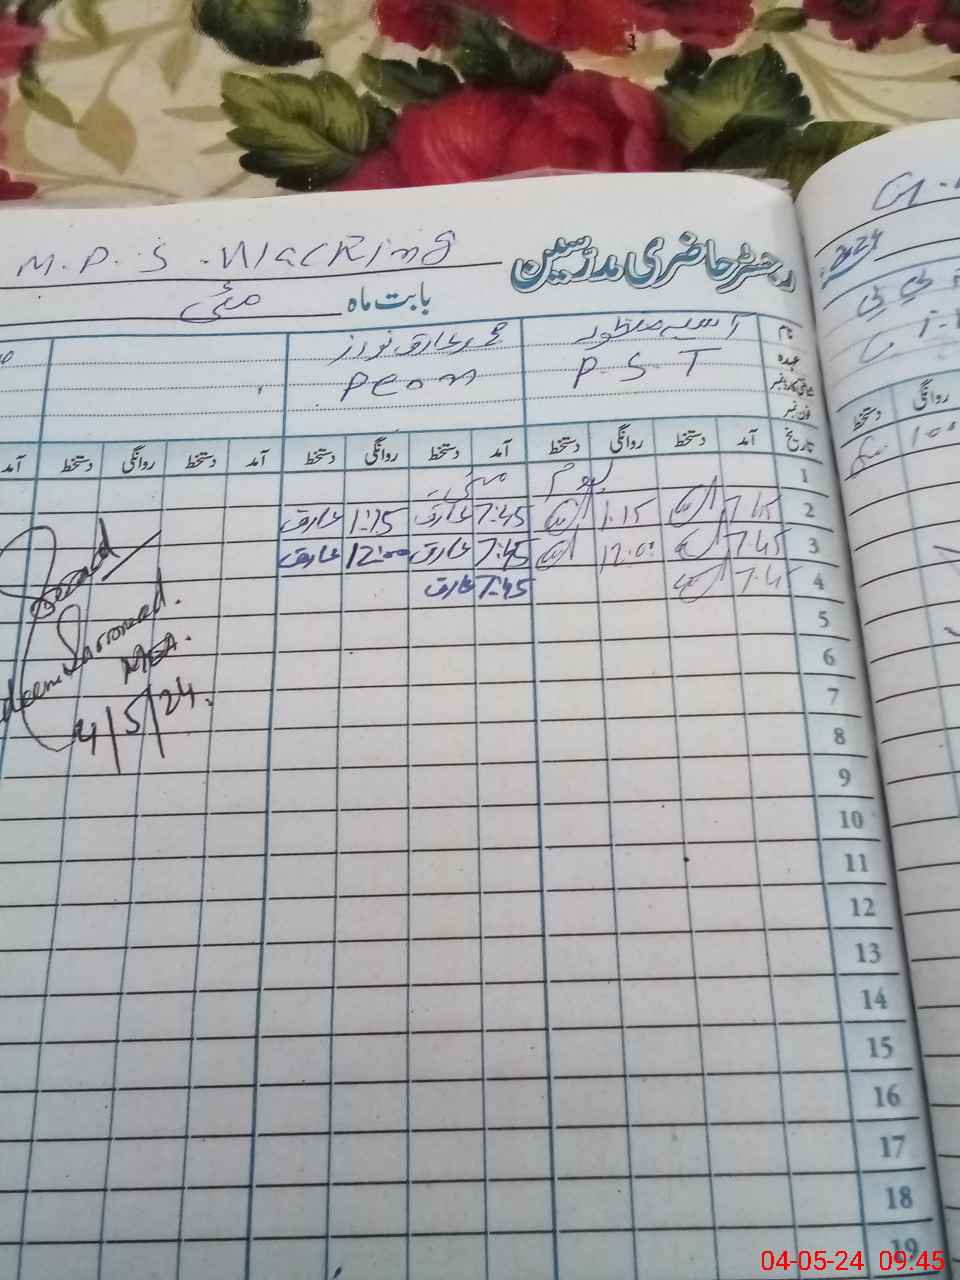 M.P.S. Wacking
رجسٹر حاضری مدرسین
بابت ماہ مئی
نام آسیہ منظور محمد طارق نواز
عہدہ P.S.T Peon
شناختی کارڈ نمبر
فون نمبر
تاریخ آمد دستخط روانگی دستخط آمد دستخط روانگی دستخط آمد دستخط روانگی دستخط آمد
1 یوم مئی
2 7.45 1.15 7.45 طارق 1:15 طارق
3 7.45 12.00 7.45 طارق 12:00 طارق
4 7.45 7.45 طارق
5
6
7
8
9
10
11
12
13
14
15
16
17
18
19
4/5/24.
2024
روانگی دستخط
1.00
04-05-24 09:45